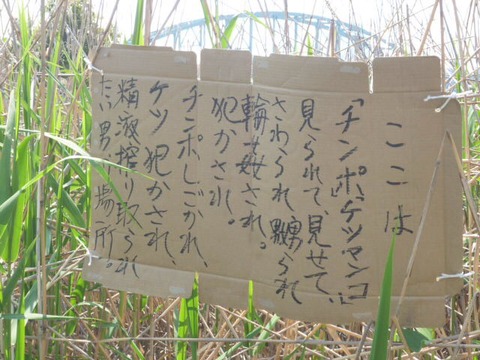 ここは
「チンポ、「ケツマンコ」
見られて、見せて、
さわられ、嬲られ
輪姦され。
犯かされ。
チンポ、しごかれ、
ケツ 犯かされ、
精液搾り取られ
たい男の場所。